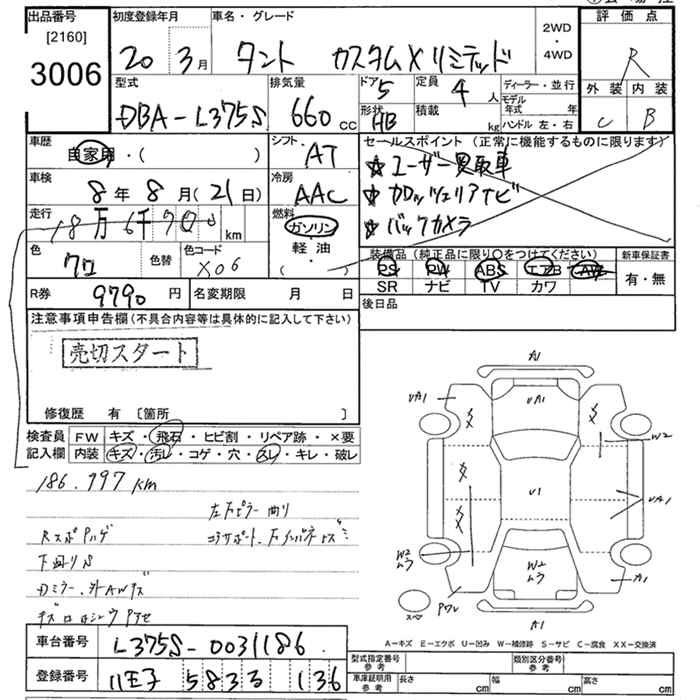 出品番号
[2160]
3006
初度登録年月
20年 3月
車名・グレード
タント カスタムXリミテッド
2WD
・
4WD
評価点
R
外装 内装
C B
型式
DBA-L375S
排気量
660 cc
ドア
5
形状
HB
定員
4人
積載
kg
ディーラー・並行
モデル年式 年
ハンドル 左・右
車歴
自家用・( )
シフト
AT
セールスポイント (正常に機能するものに限ります)
☆ユーザー買取車
☆カロッツェリアナビ
☆バックカメラ
車検
8年 8月(21日)
冷房
AAC
走行
18万6千 km
燃料
ガソリン
軽・油
( )
色
クロ
色替
色コード
X06
装備品 (純正品に限り○をつけてください)
PS PW ABS エアB AW
SR ナビ TV カワ
新車保証書
有・無
R券
9790円
名変期限 月 日
後日品
注意事項申告欄(不具合内容等は具体的に記入して下さい)
売切スタート
修復歴 有 〔箇所 〕
検査員 FW キズ・飛石・ヒビ割・リペア跡・×要
記入欄 内装 キズ・汚レ・コゲ・穴・スレ・キレ・破レ
186.997km
左Fピラー曲り
コアサポート
下回りS
Dミラー・外AWキズ
A1
UA1
UA1
W2
U1
UA1
W2
ムラ
W2
ムラ
A1
スペア
A1
A-キズ E-エクボ U-凹み W-補修跡 S-サビ C-腐食 XX-交換済
車台番号
L375S-0031186
登録番号
八王子 583 136
型式指定番号
参考
類別区分番号
参考
車庫証明用
参考
長さ cm
幅 cm
高さ cm